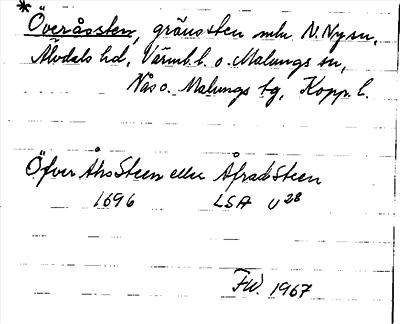 * Överåssten, gränssten mln N. Ny sn,
Älvdals hd, Värml. l. o. Malungs sn,
Nås o. Malungs tg, Kopp. l.
Öfver Åhs Steen eller Åfrads Steen
1696 LSA U 28
FW. 1967